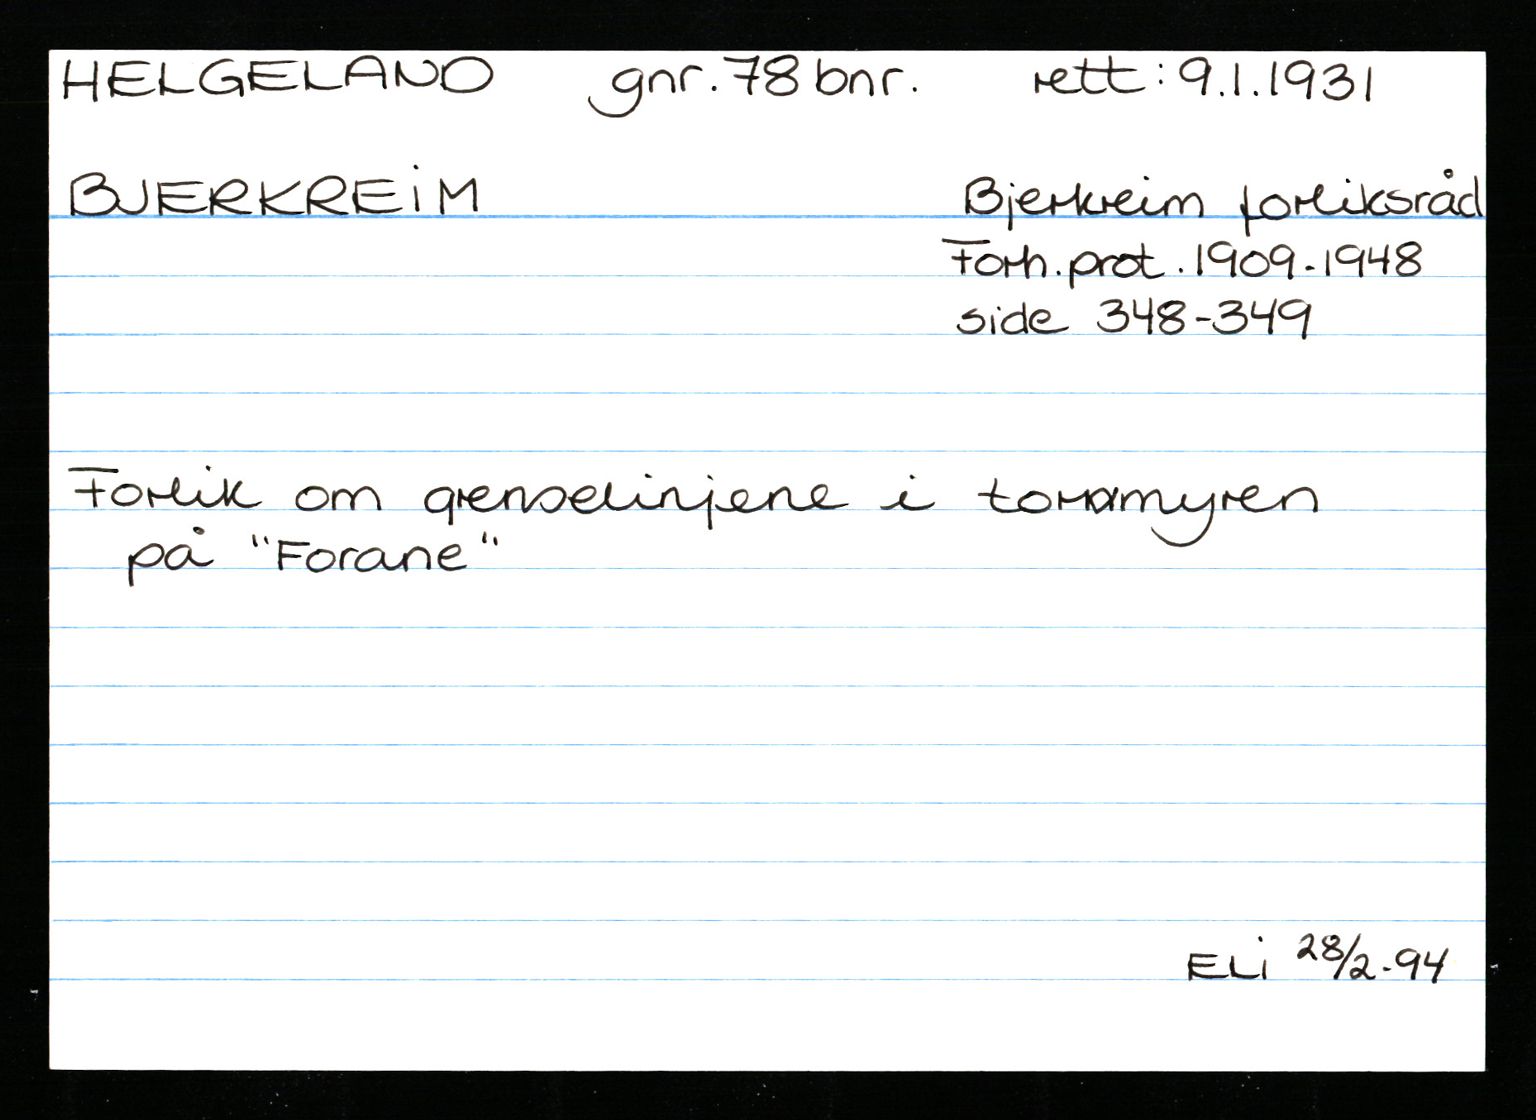 HELGELAND gnr. 78 bnr. rett: 9.1.1931
BJERKREIM Bjerkreim forliksråd
Forh. prot. 1909-1948
side 348-349
Forlik om grenselinjene i torvmyren
på "Forane"
Eli 28/2-94